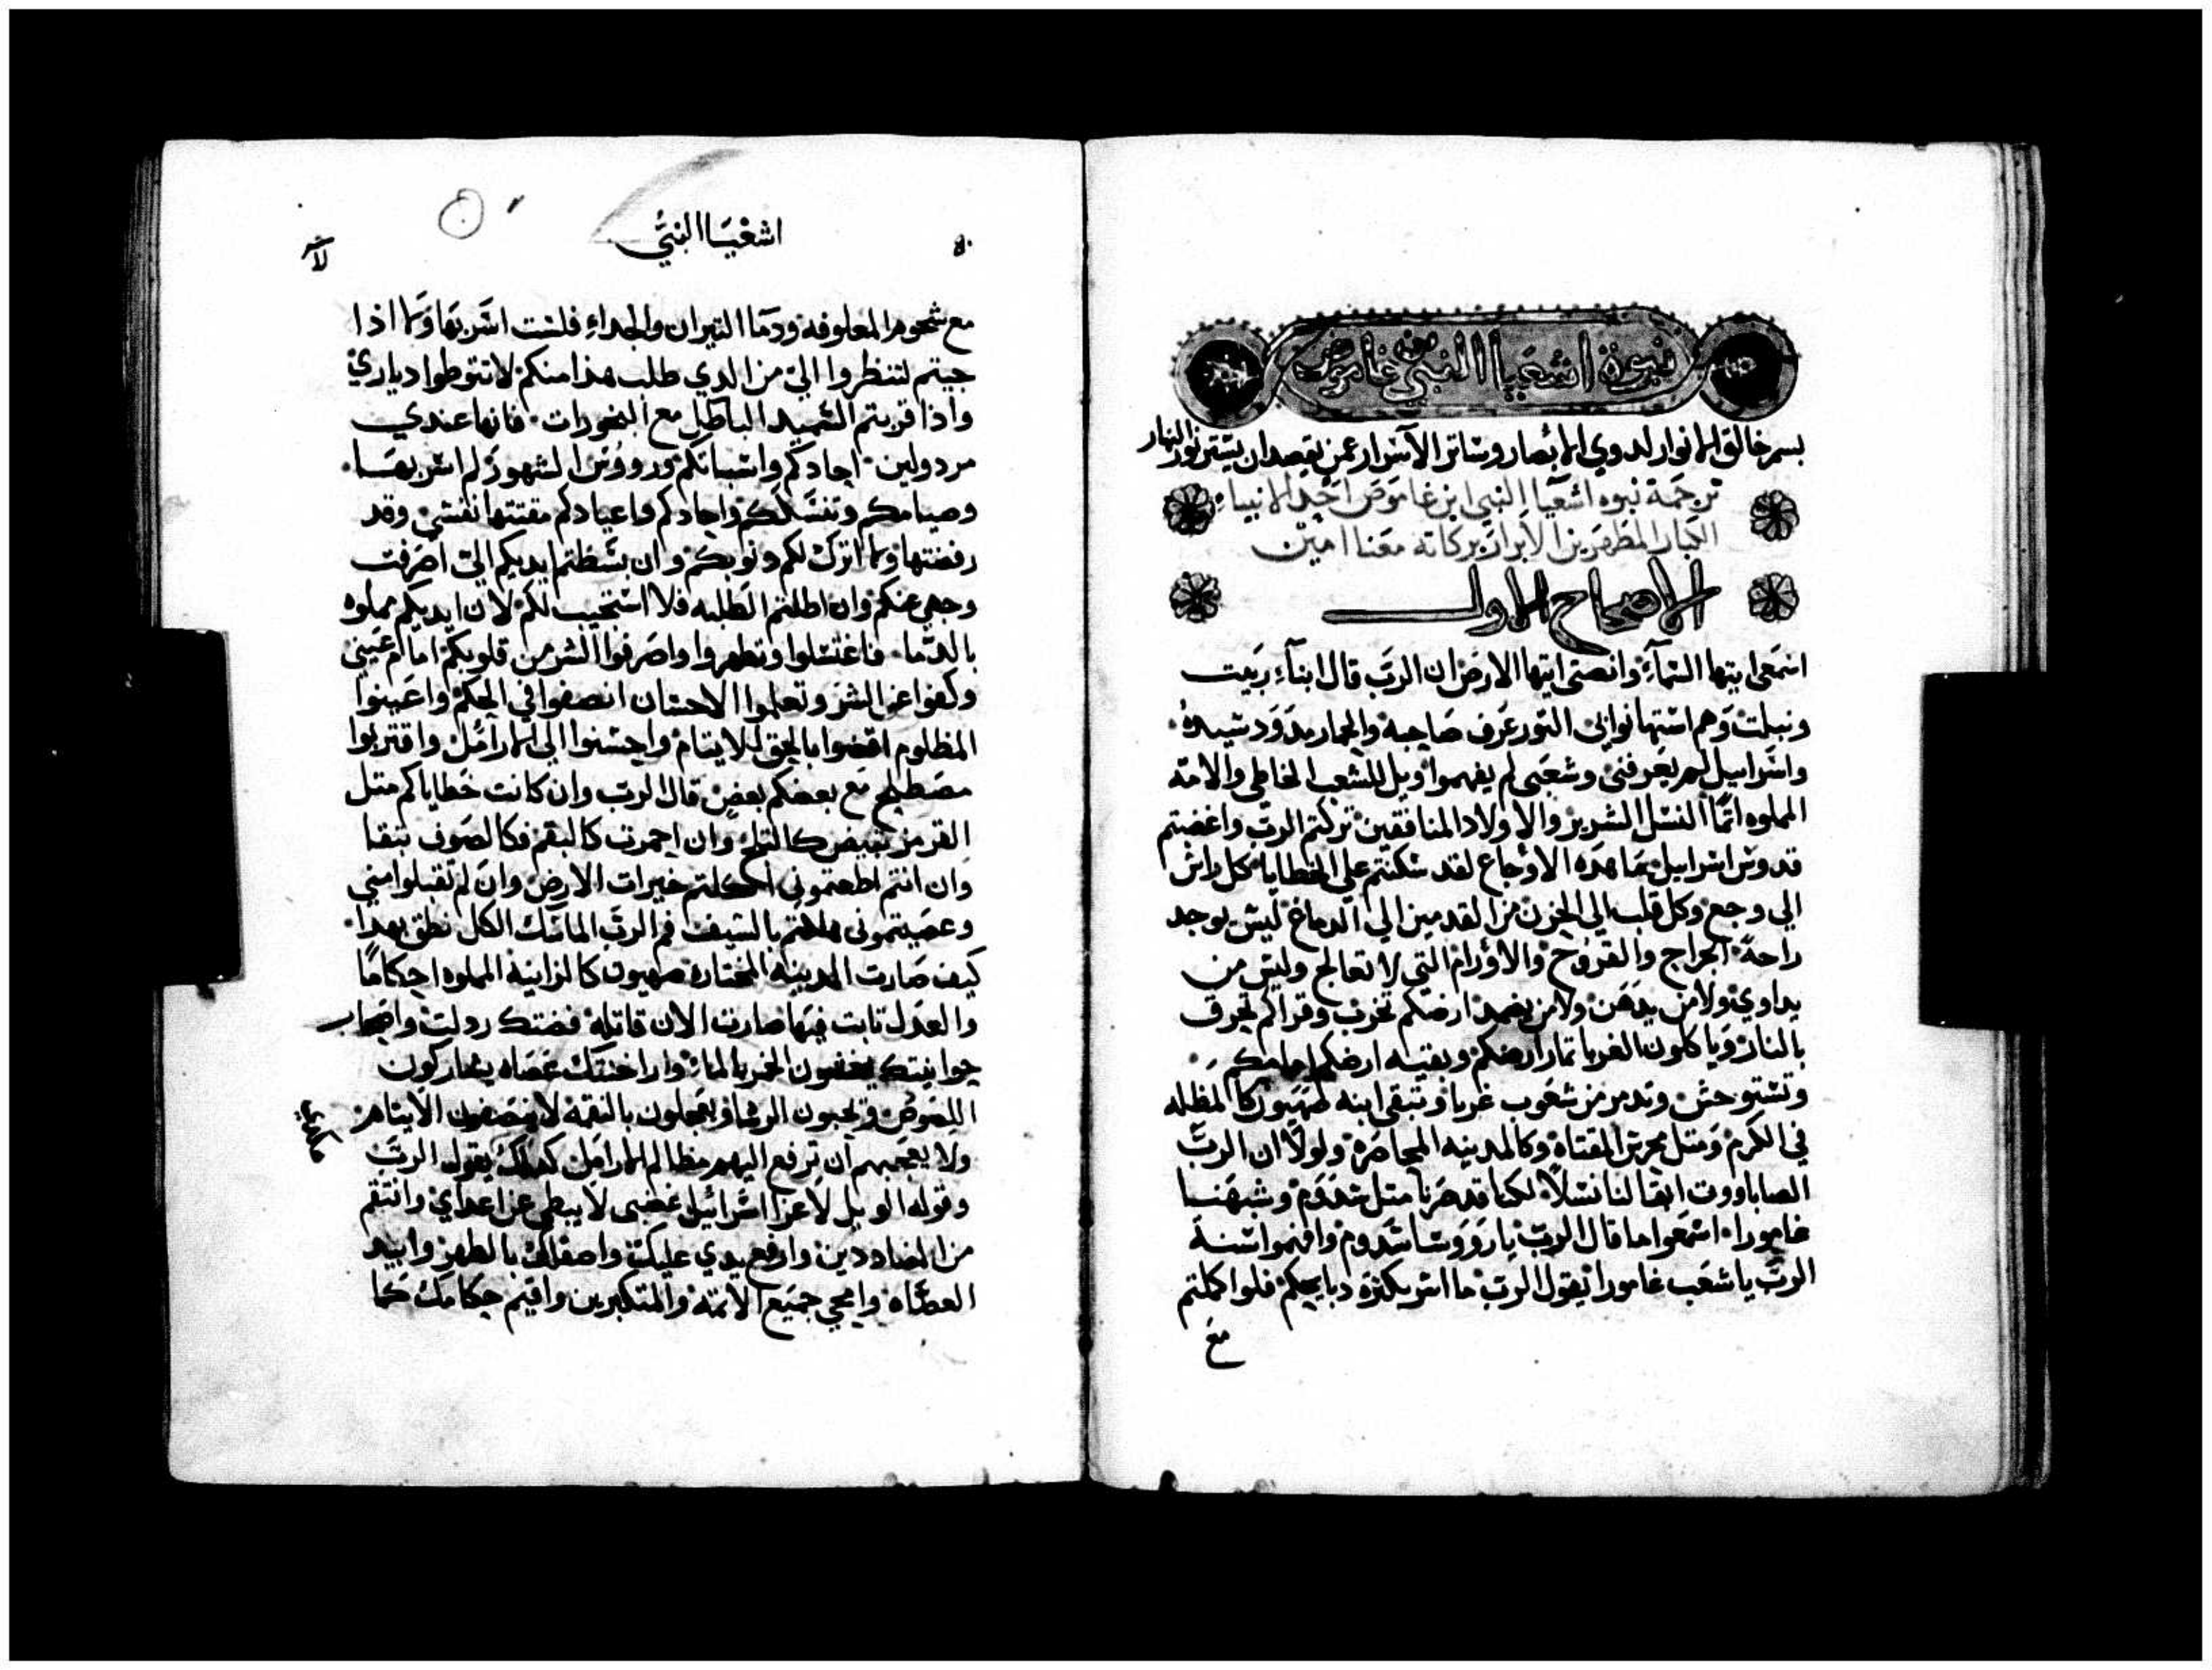 نبوة اشعيا النبي بن غاموص
بسم خالق الانوار لدوي الابصار وساتر الاسرار عمن يقصد ان يستتر نور النهار
ترجمة نبوه اشعيا النبي ابن غاموص احد الانبياء
الكبار المطهرين الابرار بركاته معنا امين
الاصحاح الاول
اسمعي ايتها السماء وانصتي ايتها الارض ان الرب قال ابناء ربيت
ونبلت وهم استهانوا بي التور عرف صاحبه والحمار مدود سيده
واسراييل لم يعرفني وشعبي لم يفهموا ويل للشعب الخاطي والامه
المملوه اتما النسل الشرير والاولاد المنافقين تركتم الرب واغضبتم
قدوس اسراييل ما هده الاوجاع لقد سكنتم علي الخطايا كل راس
الي وجع وكل قلب الي الحزن من القدمين الي الدماغ ليس يوجد
راحة الجراح والقروح والاورام التي لا تعالج وليس من
يداوي ولا من يدهن ولا من يعصد ارضكم تخرب وقراكم تحرق
بالنار وياكلون الغربا تمار ارضكم وبقيه ارضكم امامكم
وتستوحش وتدمر من شعوب غربا وتبقي ابنه صهيون كالمظله
في الكرم ومتل محرس المقتاه وكالمدينه المحاصره ولولا ان الرب
الصاباووت ابقا لنا نسلا لكنا قد صرنا متل سدوم وشبهنا
غامورا اسمعوا ما قال الرب يا رووسا سدوم وافهموا سنة
الرب يا شعب غامورا يقول الرب ما اسر بكثرة دبايحكم فلو اكلتم
مع
اشعيا النبي
مع شحوم المعلوفه ودما التيران والجداء فلست اسر بها ولا ادا
جيتم لتنظروا الي من الدي طلب هدا منكم لا تتوطوا دياري
وادا قربتم السميد الباطل مع البخورات فانها عندي
مردولين احادكم واسباتكم ورووس الشهور لم اسر بها
وصيامكم وتنسككم واحادكم واعيادكم مقتتها نفسي وقد
رفضتها ولا اترك لكم دنوبكم وان بسطتم ايديكم الي اصرفت
وجهي عنكم وان اطلتم الطلبه فلا استجيب لكم لان ايديكم مملوه
بالدما فاغتسلوا وتطهروا واصرفوا الشر من قلوبكم امام عيني
وكفوا عن الشر وتعلموا الاحسان انصفوا في الحكم واعينوا
المظلوم اقضوا بالحق للايتام واحسنوا الي الارامل واقتربوا
مصطلح مع بعضكم بعض قال الرب وان كانت خطاياكم متل
القرمز تبيض كالتلج وان احمرت كالبقم فكالصوف تنقا
وان انتم اطعتموني اكلتم خيرات الارض وان لم تقبلوا مني
وعصيتموني هلكتم بالسيف فم الرب الماسك الكل نطق بهدا
كيف صارت المدينه المختاره صهيون كالزانية المملوه احكاما
والعدل تابت فيها صارت الان قاتله فضتك ردلت واصحاب
حوانيتك يخلطون الخمر بالما واراخنتك عصاه يشاركون
اللصوص ويحبون الرشا ويعجلون بالنقمه لا ينصفون الايتام
ولا يعجبهم ان ترفع اليهم مظالم الارامل كدلك يقول الرب
وقوله الويل لاعزا اسرائيل غضبي لا يبطي عن اعداي وانتقم
من المضاددين وارفع يدي عليك واصفيك بالطهر وابيد
العصاه وامحي جميع الاتمه والمتكبرين واقيم حكامك كما